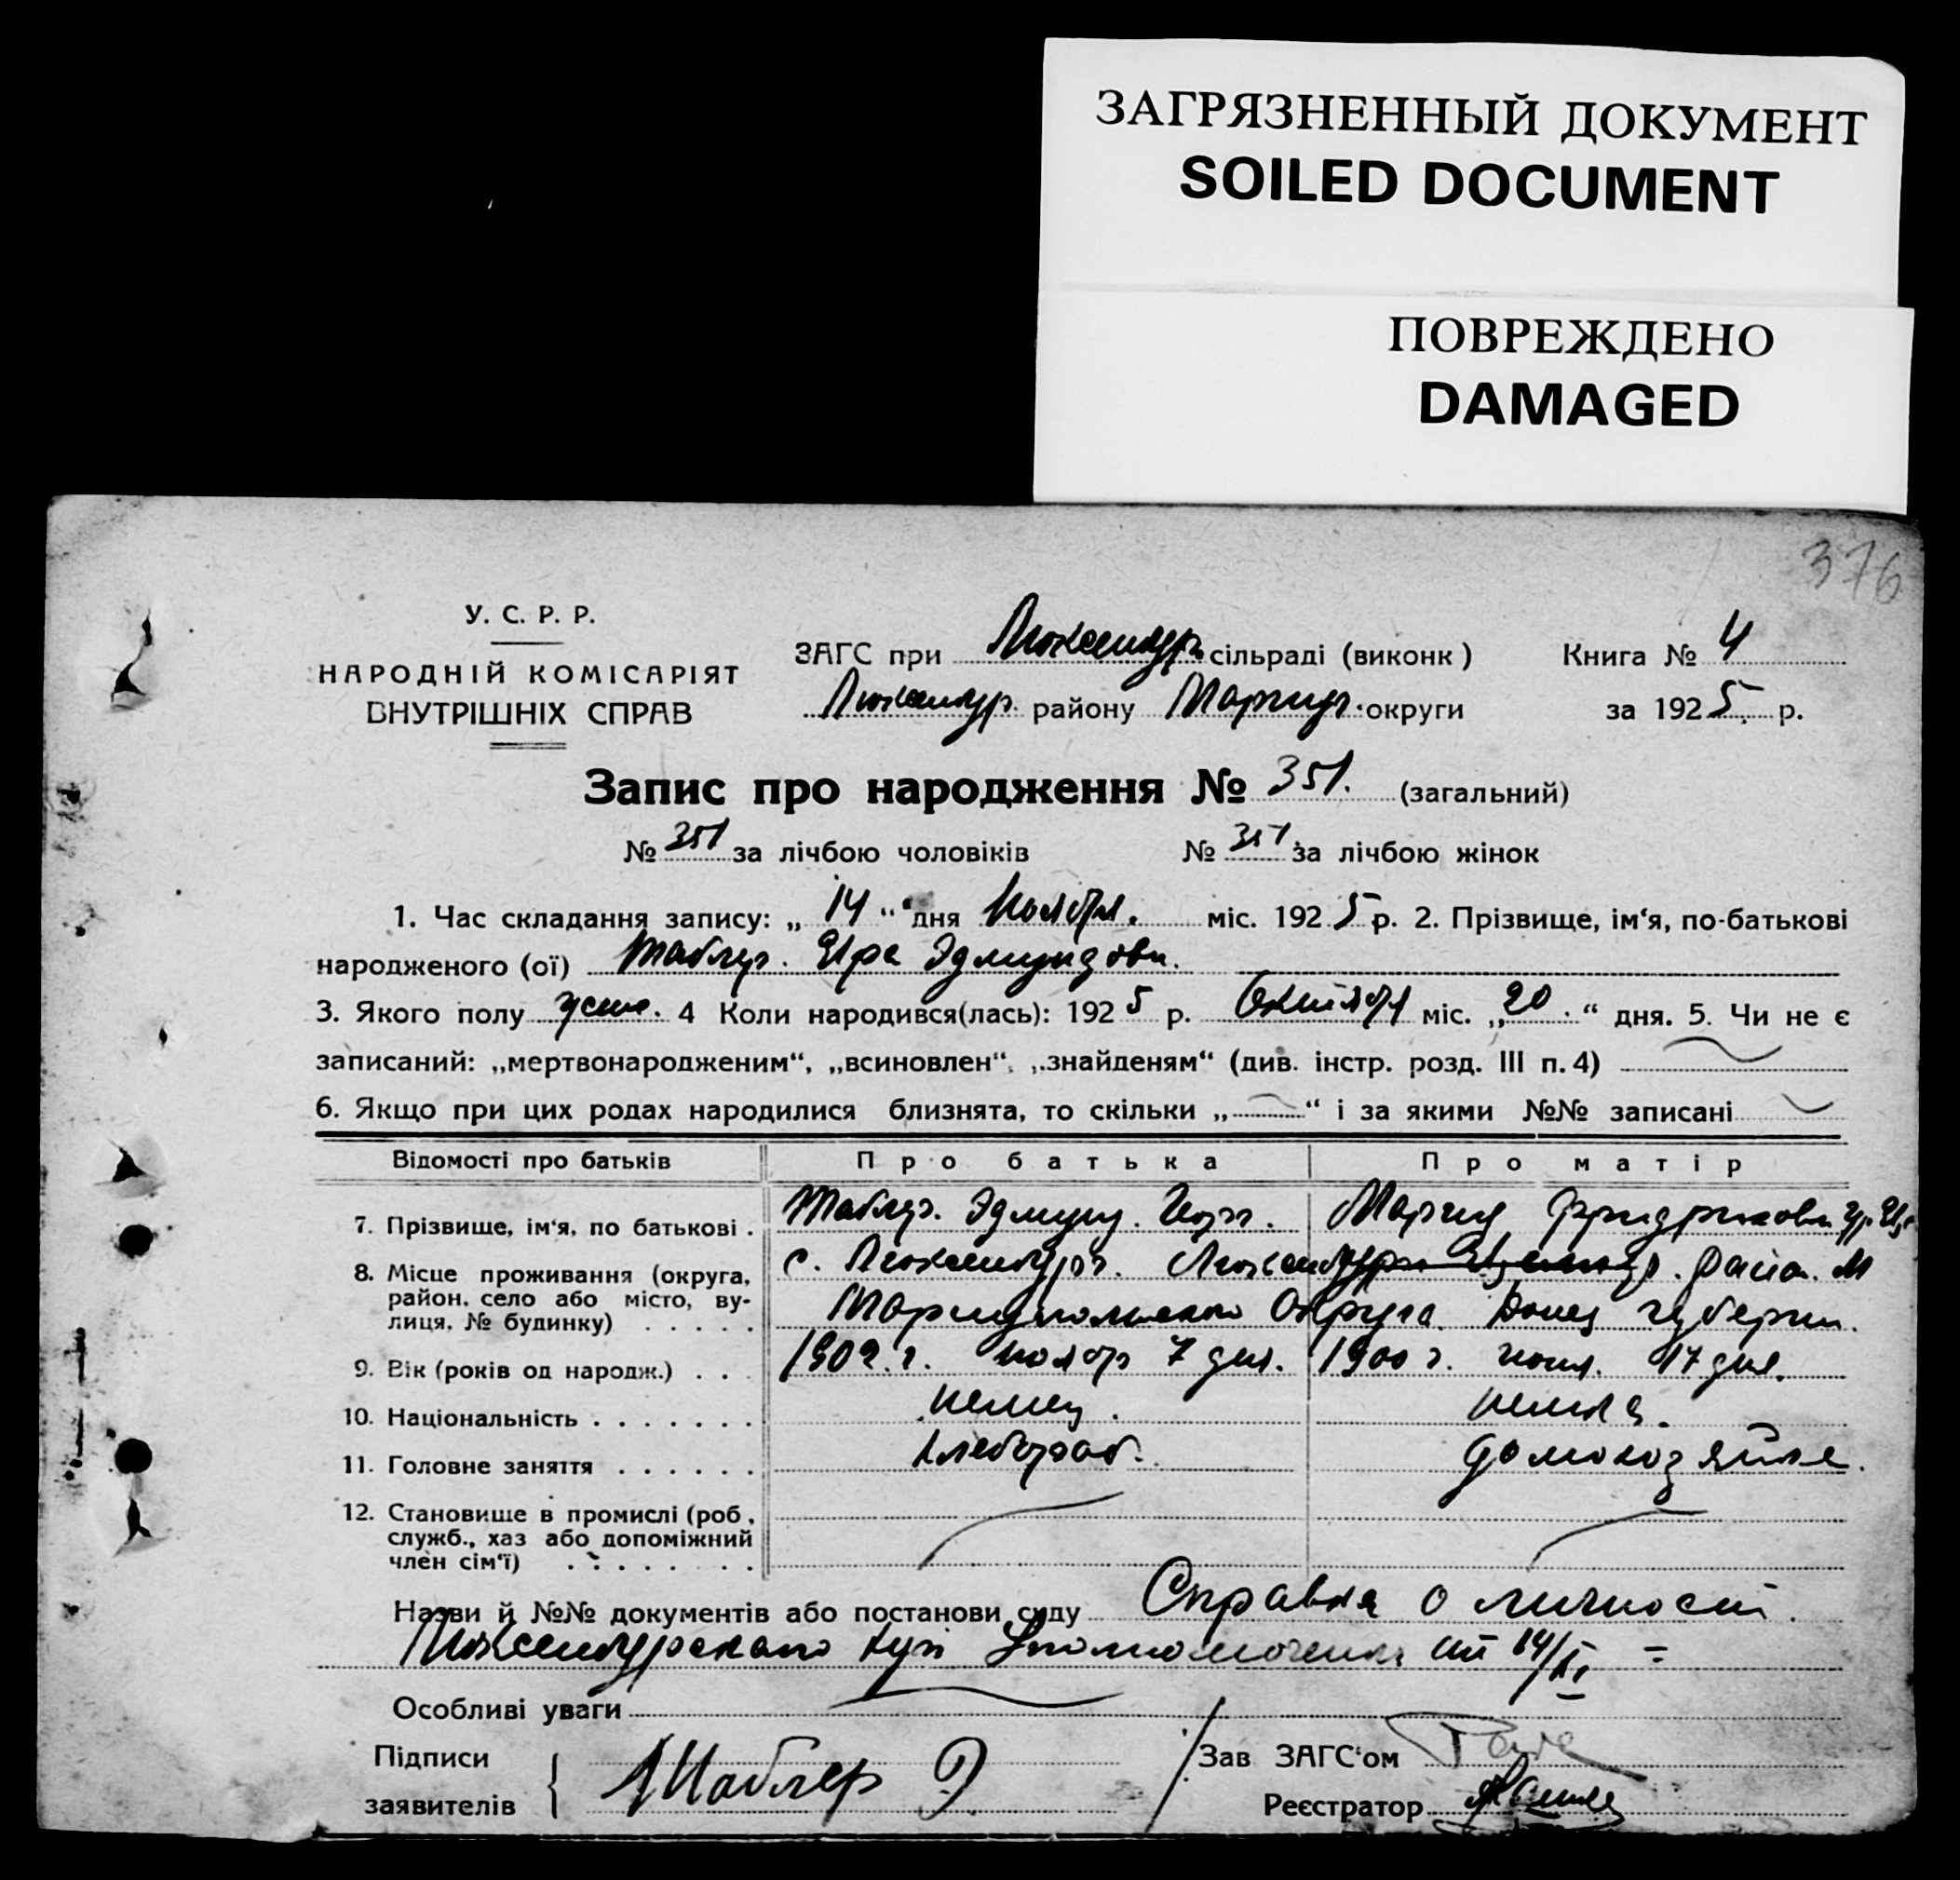 ЗАГРЯЗНЕННЫЙ ДОКУМЕНТ
SOILED DOCUMENT
ПОВРЕЖДЕНО
DAMAGED
376
У. С. Р. Р.
НАРОДНІЙ КОМІСАРІЯТ
ВНУТРІШНІХ СПРАВ
ЗАГС при Люксембур. сільраді (виконк) Книга № 4
Люксембур. району Мариуп. округи за 1925. р.
Запис про народження № 351. (загальний)
№ 351 за лічбою чоловіків № 351 за лічбою жінок
1. Час складання запису: „ 14 “ дня Ноября. міс. 1925 р. 2. Прізвище, ім‘я, по-батькові
народженого (ої) Таблер. Эдмундовн.
3. Якого полу женс. 4 Коли народився(лась): 1925 р. Октября міс. „20.“ дня. 5. Чи не є
записаний: „мертвонародженим“, „всиновлен“, „знайденям“ (див. інстр. розд. III п. 4)
6. Якщо при цих родах народилися близнята, то скільки „ “ і за якими №№ записані
Відомості про батьків Про батька Про матір
7. Прізвище, ім‘я, по батькові . Таблер. Эдмунд. Мария Фридриховн.
8. Місце проживання (округа, район, село або місто, вулиця, № будинку) . . . . . с. Люксембург. район. М
Мариупольского Округа. Донец губерни.
9. Вік (років од народж.) . . . 1902. г. ноябр 7 дня. 1900 г. 17 дня.
10. Національність . . . . . . . немец. немка.
11. Головне заняття . . . . . . хлебороб. домохозяйка.
12. Становище в промислі (роб, служб., хаз або допоміжний член сім‘ї) . . . . . . .
Назви й №№ документів або постанови суду Справка о личност.
Люксембургского Уполномоченн от 14/XI
Особливі уваги
Підписи
заявителів
Зав ЗАГС‘ом
Реєстратор